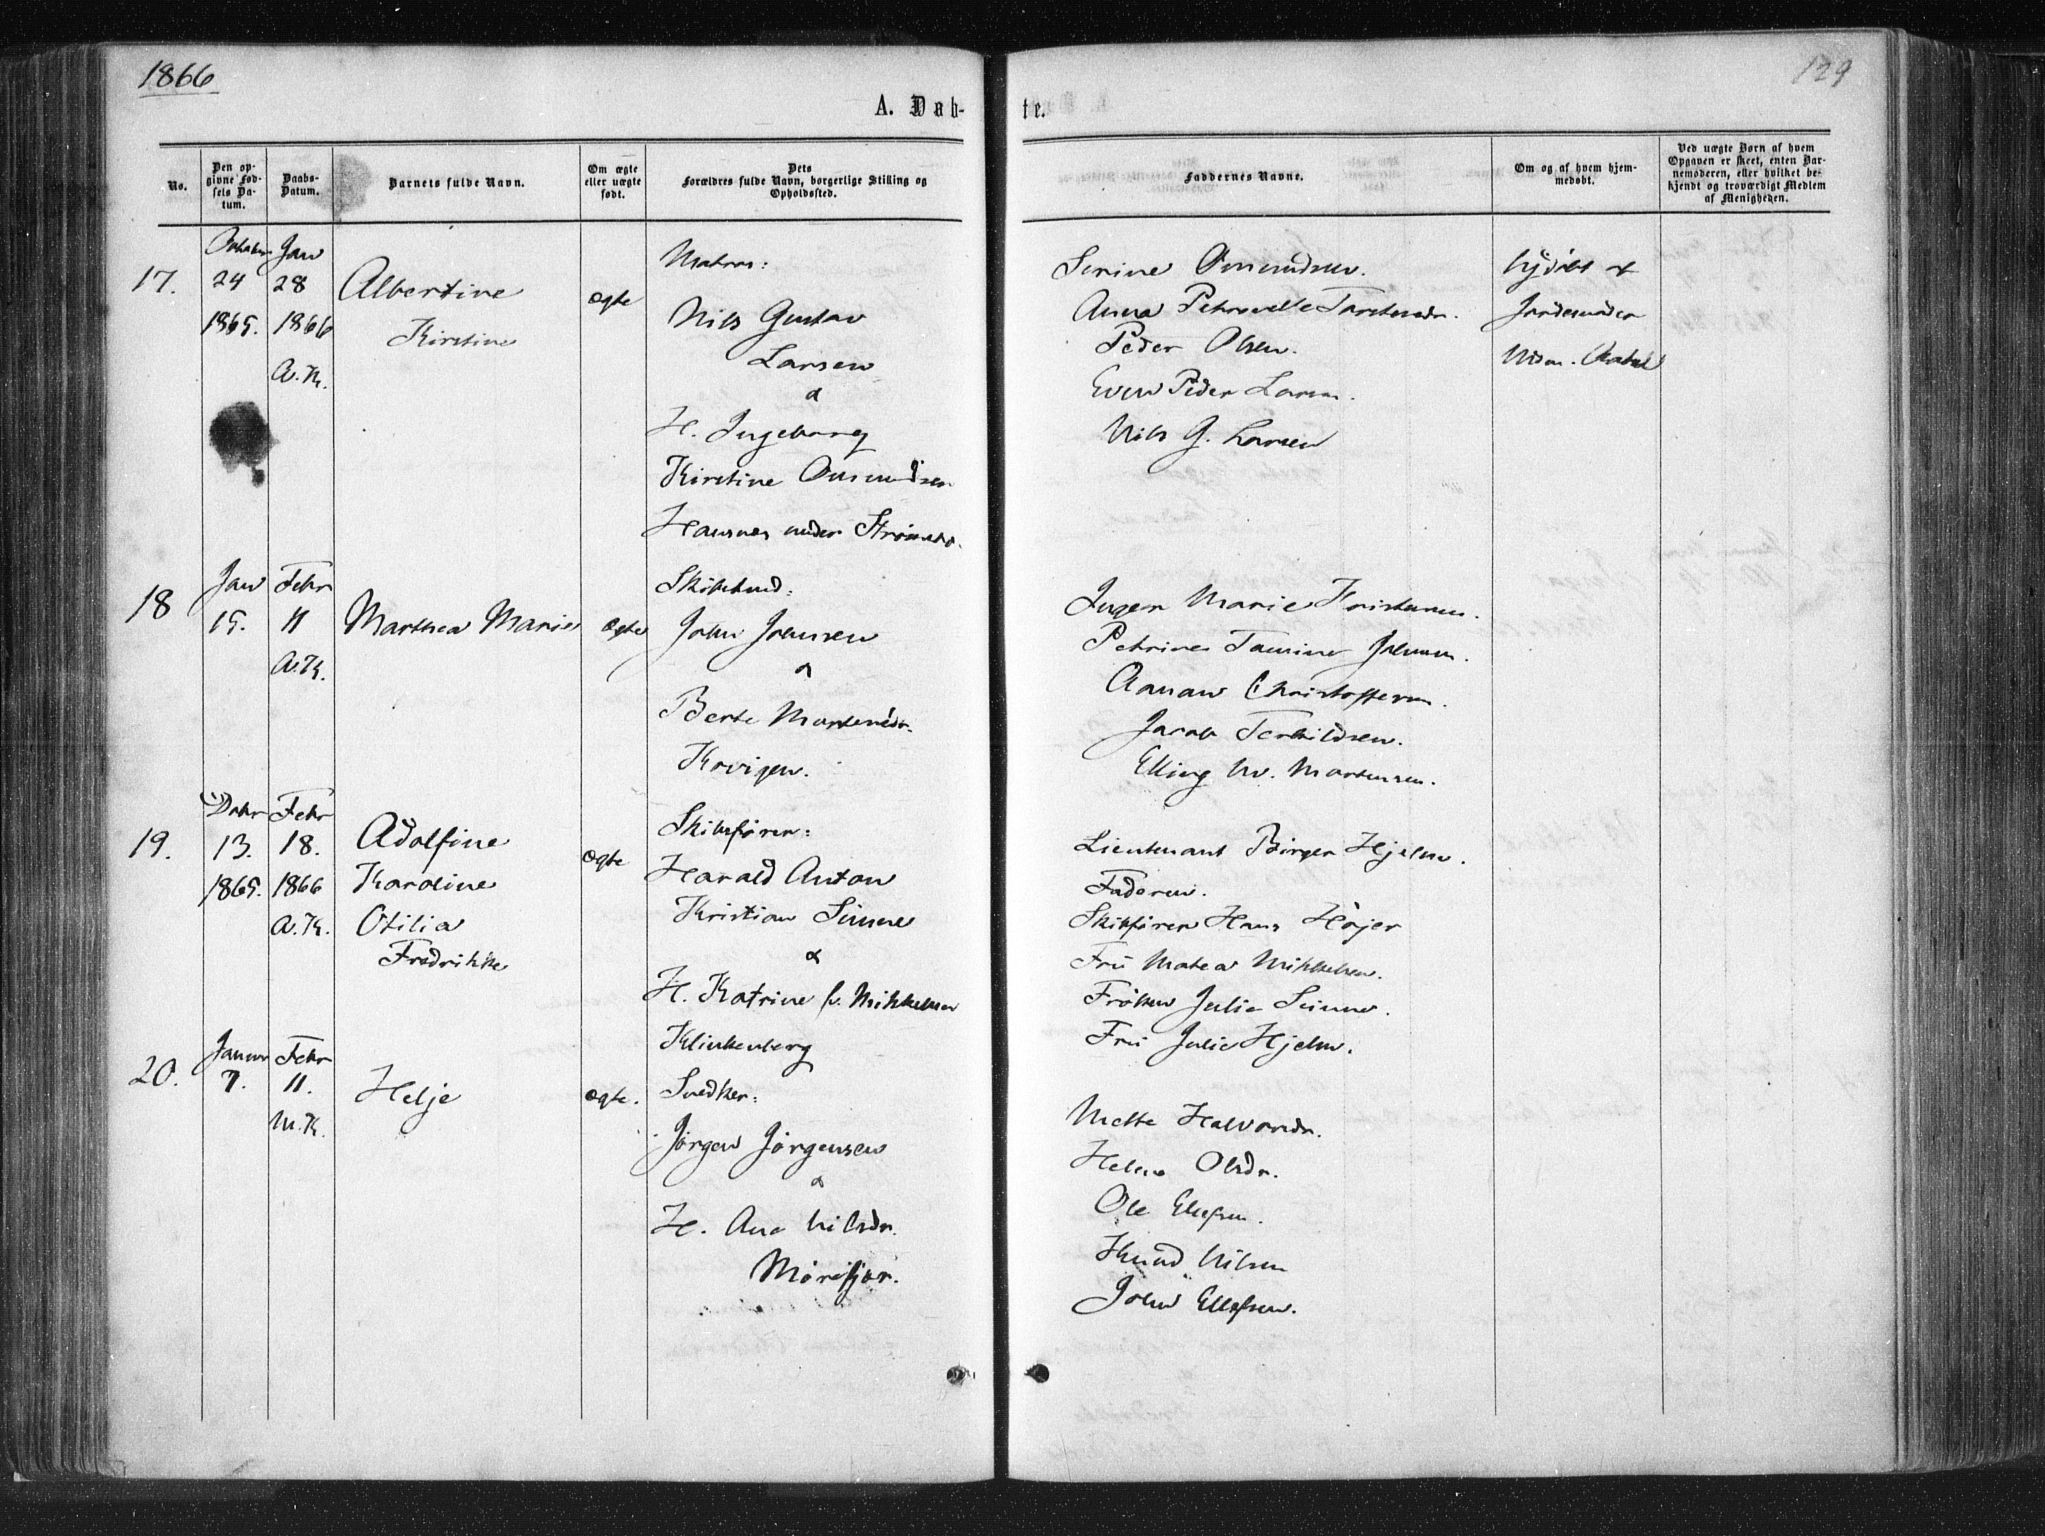 1866
129
A. Døb-
te.
No.
Den op-
givne Fød-
sels Da-
tum.
Daabs-
Datum.
Barnets fulde Navn.
Om ægte
eller uægte
født.
Dets
Forældres fulde Navn, borgerlige Stilling og
Opholdssted.
Faddernes Navne.
Om og af hvem hjem-
medøbt.
Ved uægte Børn af hvem
Opgaven er skeet, enten Bar-
nemoderen, eller hvilket be-
kjendt og troværdigt Medlem
af Menigheden.
17.
24
1865.
Jan
28
1866
A.K.
Albertine
Kirstine
ægte
Matros:
Nils Gustav
Larsen
&
H. Ingeborg
Kirstine Omsmundsen
under
Serine
Anna
Peder Olsen.
Even Peder Larsen.
Nils G. Larsen
hjdøbt &
Jordemoder
18
Jan
15.
Febr
11
A.K.
Marthea Marie
ægte
John Johnsen
&
Berte Mortensdr.
Krvigen.
Inger Marie
Petrine
Christoffersen.
Jacob Terkildsen.
Elling M. Mortensen.
19.
13.
1865.
Febr
18.
1866
A.K.
Adolfine
Karoline
Otilia
Fredrikke
ægte
Skibsfører:
Harald Anton
Kristian
&
H. Katrine f. Mikkelsen
Klinkenberg
Lieutenant Birger Hjelm.
Faderen.
Skibsfører Hans Høyer
Fru Matea Mikkelsen.
Frøken Julie
Fru Julie Hjelm.
20.
Januar
7.
Febr
11.
M.K.
Helje
ægte.
Snedker:
Jørgen Jørgensen
&
H. Ane Nilsdr.
Mørefjær.
Mette Halvorsdr.
Helene Olsdr.
Ole Ellefsen.
Knud Nilsen
John Ellefsen.